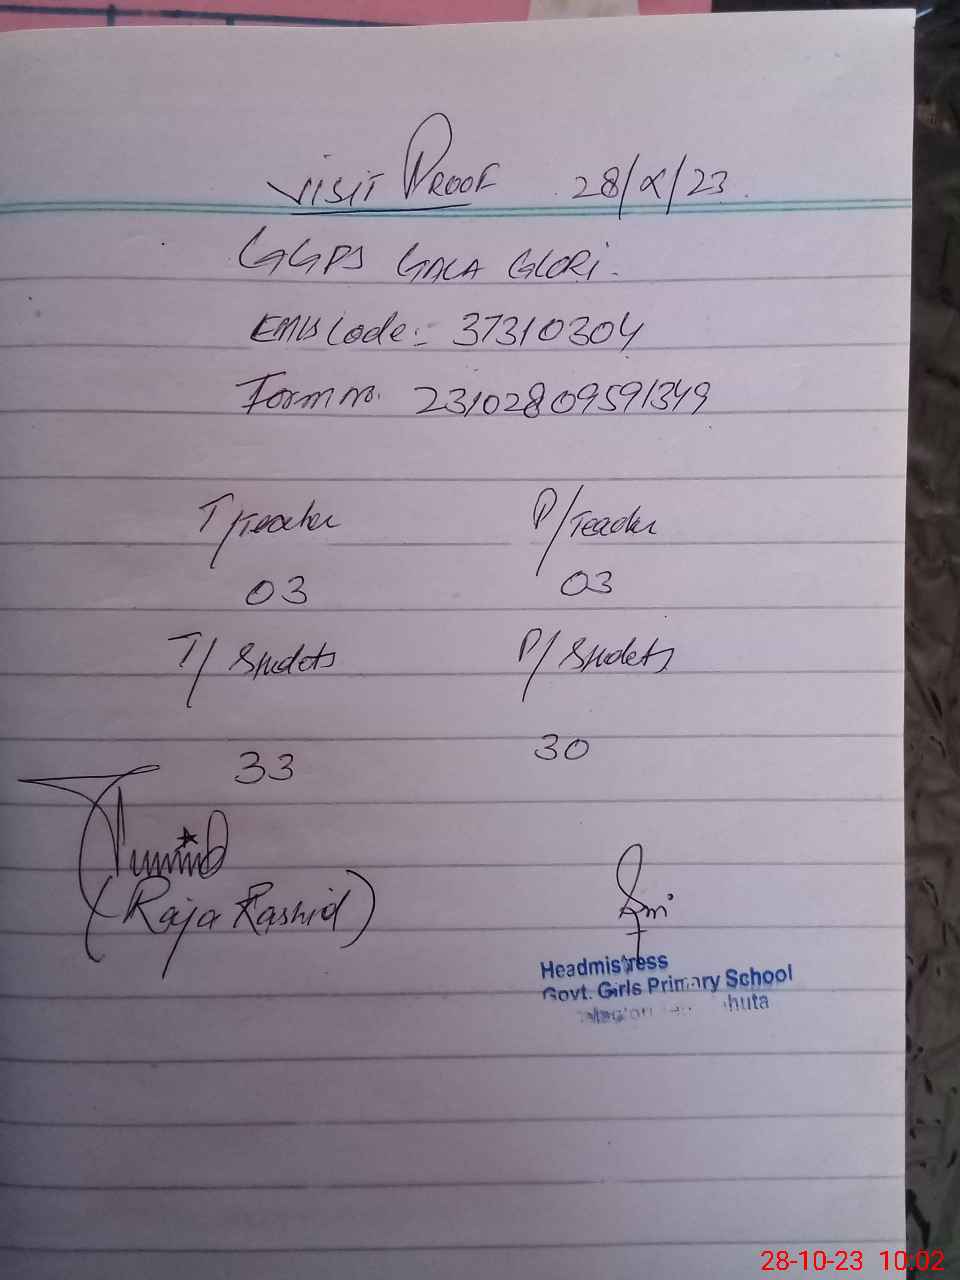 VISIT PROOF 28/X/23.
GGPS GALA GLORI.
EMIS Code:- 37310304
Form no. 23102809591349
T/Teacher P/Teacher
03 03
T/Studets P/Studets
33 30
(Raja Rashid)
Headmistress
Govt. Girls Primary School
28-10-23 10:02